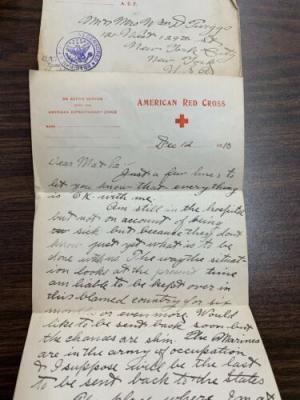 A. E. F.
Mr & Mrs W D Briggs
New York City
New York
U.S.A.
ON ACTIVE SERVICE
WITH THE
AMERICAN EXPEDITIONARY FORCE
AMERICAN RED CROSS
Dec 12 1918
Dear Ma & Pa:
Just a few lines to
let you know that everything
is O.K. with me.
Am still in the hospital
but not on account of being
sick but because they don't
know just yet what is to be
done with us. The way the situat-
ion looks at the present time
am liable to be kept over in
this blamed country for six
months or even more. Would
like to be sent back soon but
the chances are slim. The Marines
are in the army of occupation
& I suppose will be the last
to be sent back to the states
place where I'm at